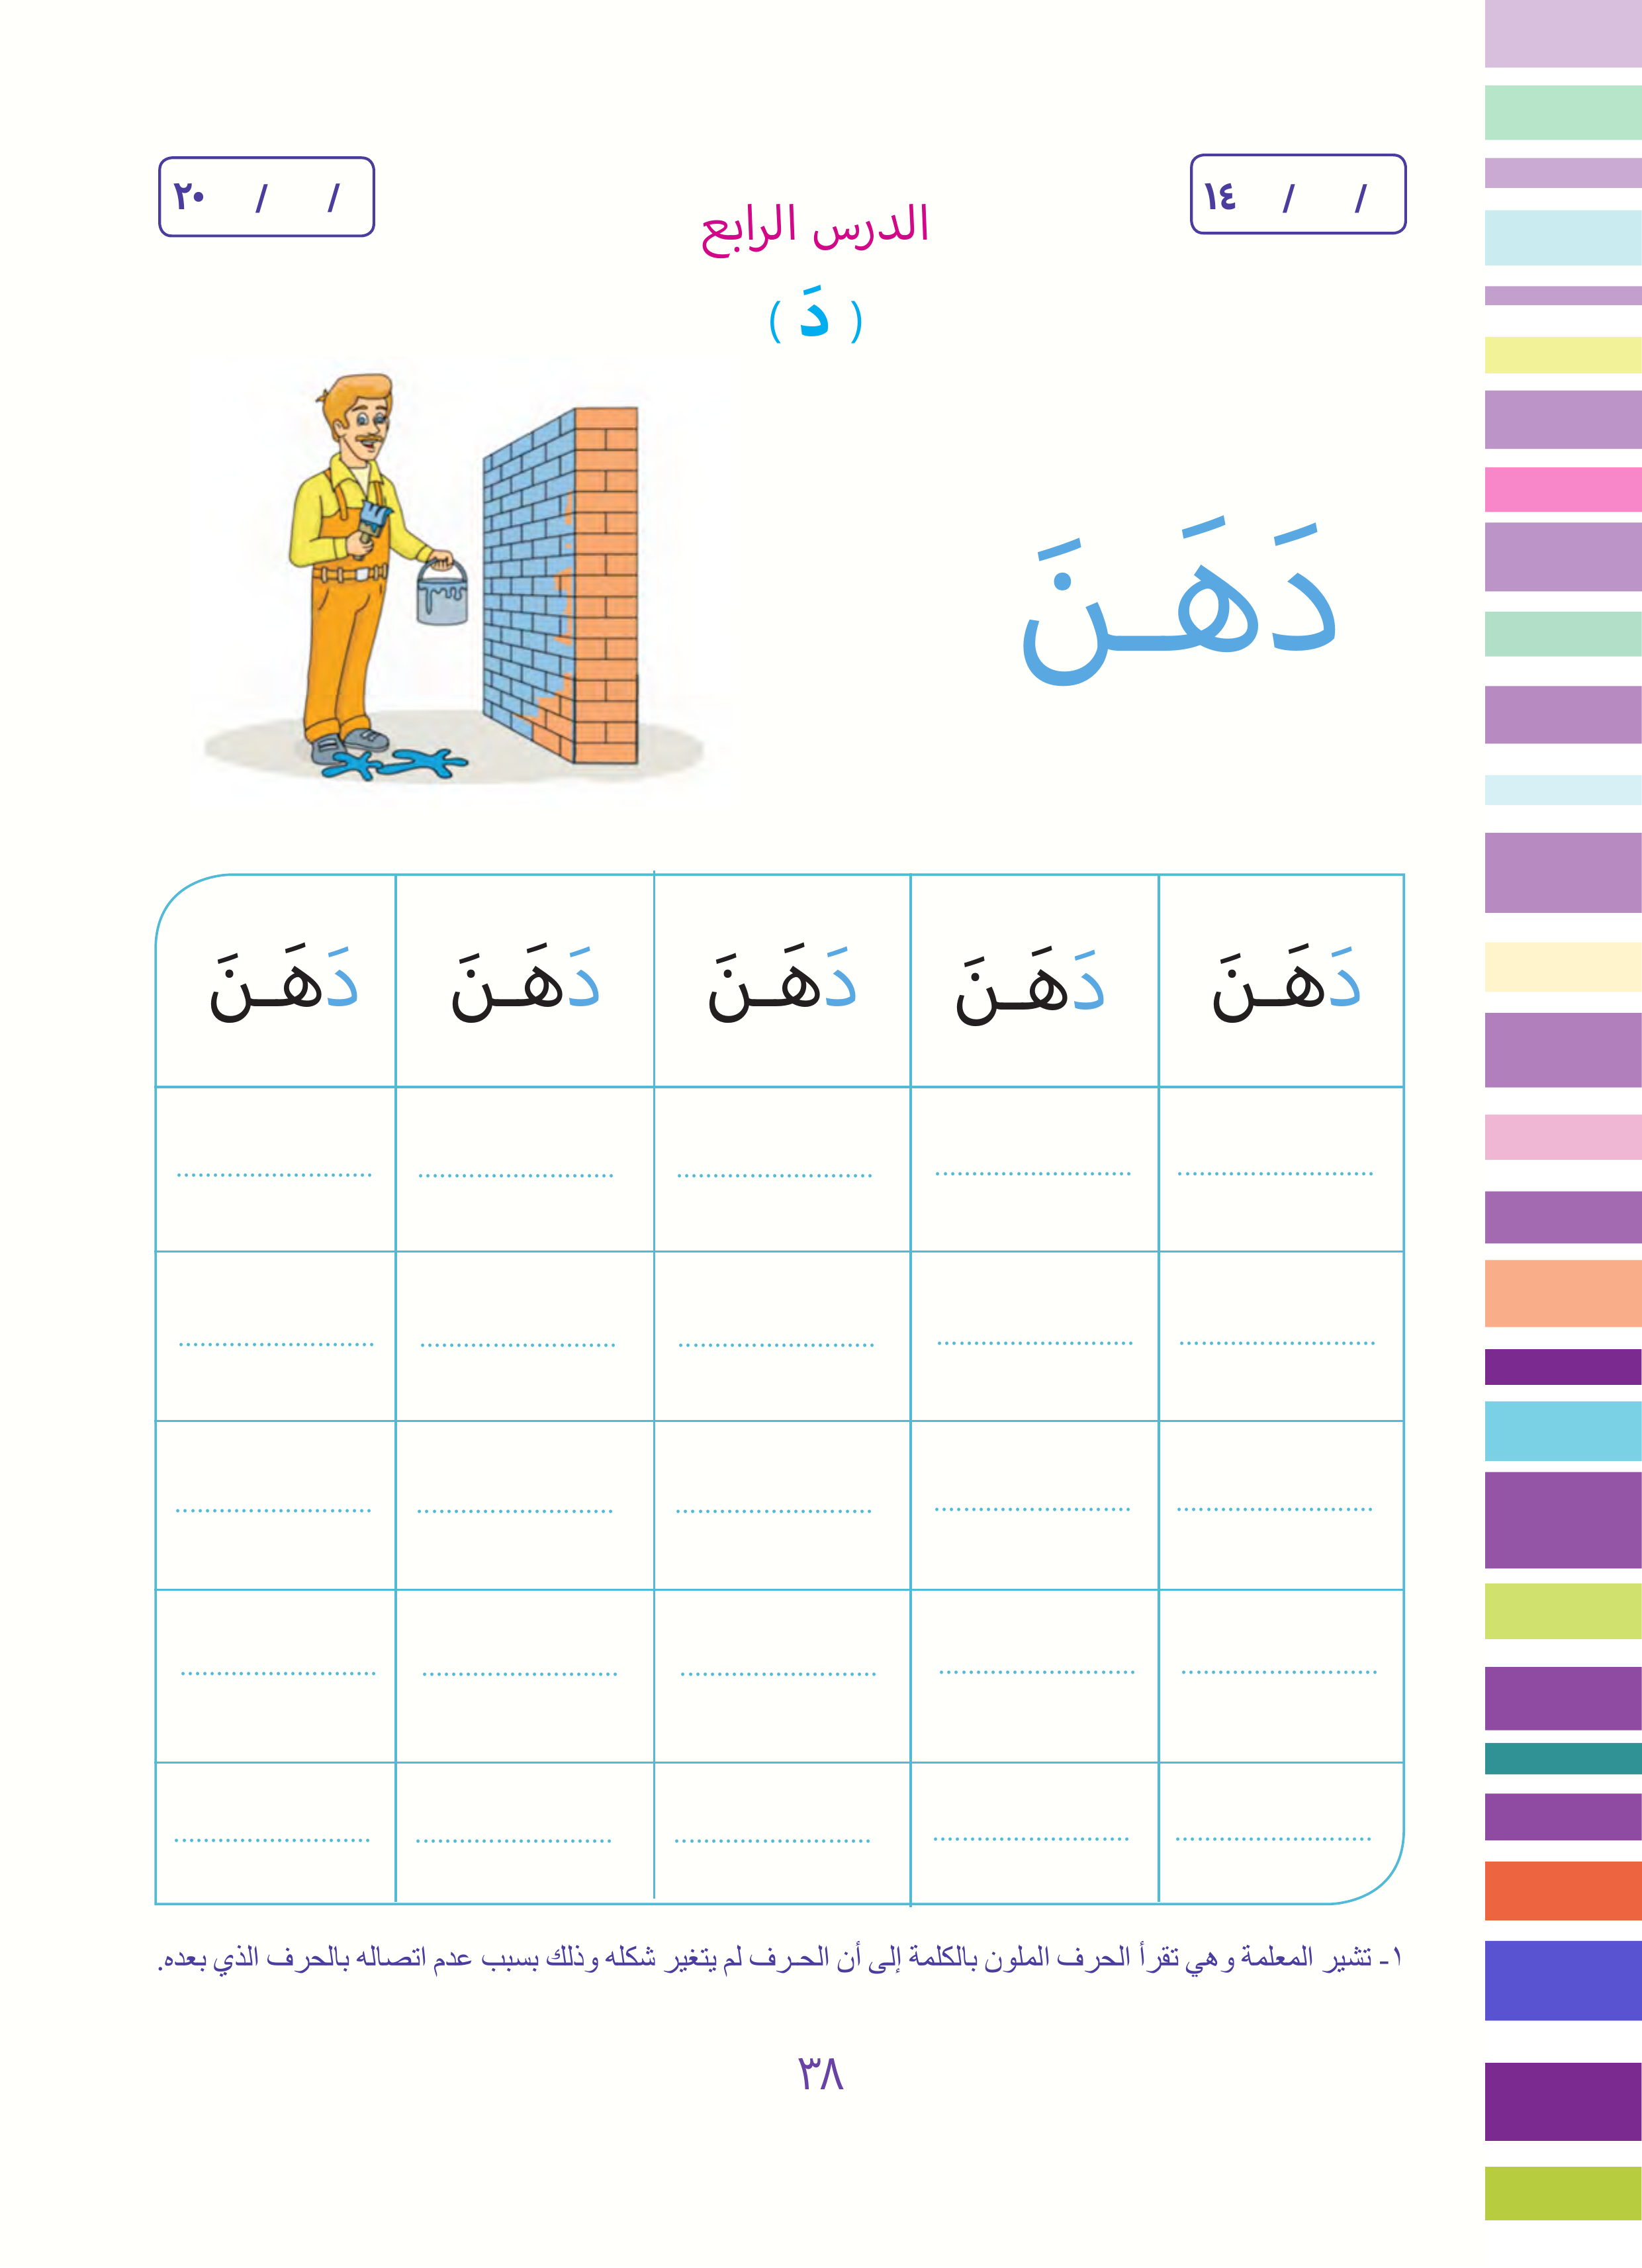 / / ١٤
/ / ٢٠
الدرس الرابع
( دَ )
دَهَـنَ
دَهَـنَ دَهَـنَ دَهَـنَ دَهَـنَ دَهَـنَ
١- تشير المعلمة وهي تقرأ الحرف الملون بالكلمة إلى أن الحـرف لم يتغير شكله وذلك بسبب عدم اتصاله بالحرف الذي بعده.
٣٨